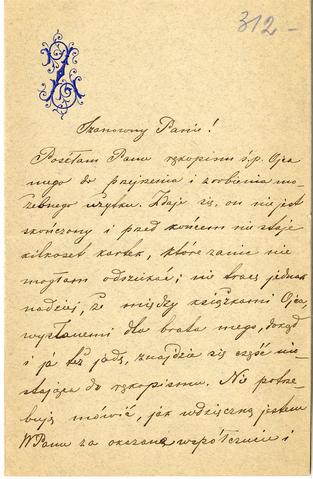 312 -
Szanowny Panie!
Posełam Panu rękopism ś.p. Ojca
mego do przejrzenia i zrobienia mo-
żebnego użytku. Zdaje się, on nie jest
skończony i przed końcem nie staje
kilkoset kartek, które zanie nie
mogłam odszukać; nie tracę jednak
nadziei, że między książkami Ojca,
wysłanemi dla brata mego, dokąd
i ja też jadę, znajdzie się część nie-
stająca do rękopismu. Nie potrze-
buję mówić, jak wdzięczną jestem
WPanu za okazane współczucie i